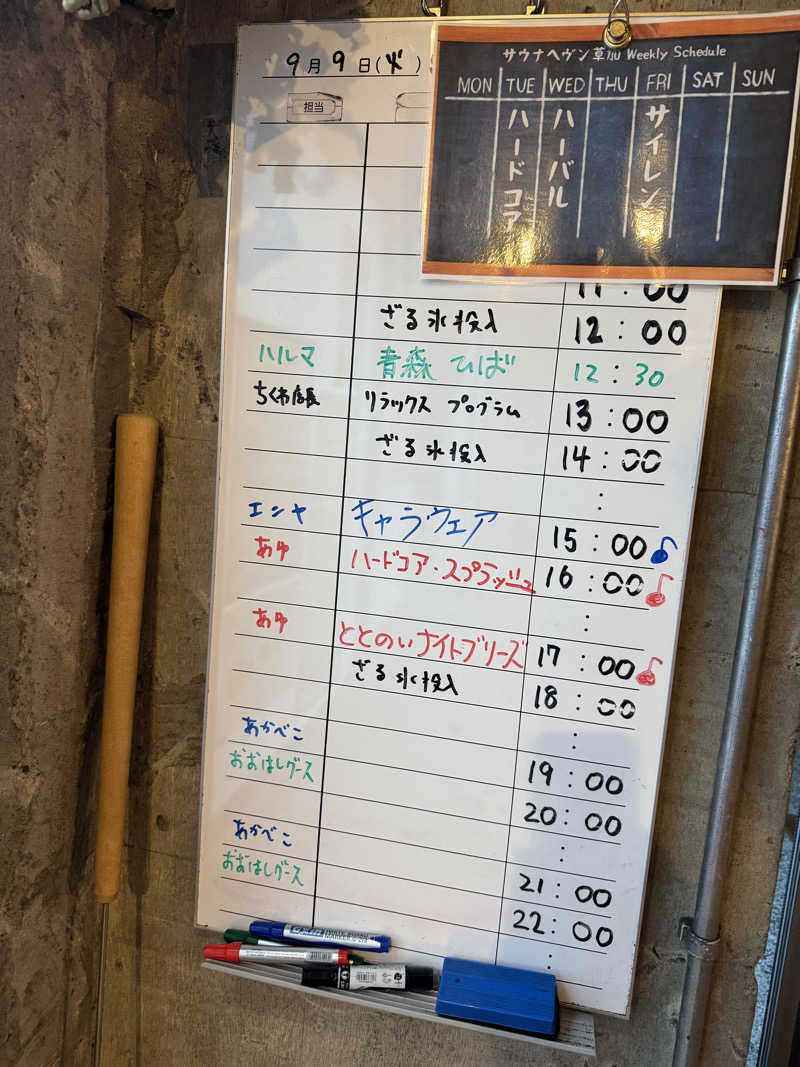 9月9日(火)
担当
サウナヘヴン草加 Weekly Schedule
MON TUE WED THU FRI SAT SUN
ハードコア
ハーバル
サイレン
11:00
ざる氷投入 12:00
ハルマ 青森ひば 12:30
ちくわ店長 リラックス プログラム 13:00
ざる氷投入 14:00
:
エンヤ キャラウェア 15:00
あゆ ハードコア・スプラッシュ 16:00
:
あゆ ととのいナイトブリーズ 17:00
ざる氷投入 18:00
:
あかべこ 19:00
おおはしグース 20:00
:
あかべこ 21:00
おおはしグース 22:00
: